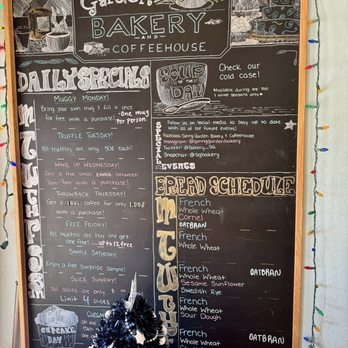 Garden
BAKERY
AND
COFFEEHOUSE
DAILY SPECIALS
MUGGY MONDAY!
Bring your own mug, I fill it once
for free with a purchase! *One mug
Per Person
TRUFFLE TUESDAY!
All truffles are only 50¢ each!
WAKE UP WEDNESDAY!
Get a free small cookie between
with a purchase!
THROWBACK THURSDAY!
Get a coffee for only 1.00$
with a purchase!
FREE FRIDAY!
All muffins are buy one get
One free ...up to 12 free
SIMPLE SATURDAY!
Enjoy a free surprise sample!
SLICE SUNDAY!
All slices are only
Limit 4 slices
CUPCAKE
DAY
SOUP OF
THE
DAY
Check our
cold case!
*Available during
& winter seasons only*
Follow us on social media to stay up to date
with all of our future events!
Facebook: Spring Garden Bakery & Coffeehouse
Instagram:
Twitter:
Snapchat:
EVENTS
BREAD SCHEDULE
M
French
Whole Wheat
Cornell
OATBRAN
T
French
Whole Wheat
W
French
Whole Wheat
OATBRAN
Sesame Sunflower
Swedish Rye
French
Whole Wheat
Sour Dough
French
OATBRAN
Whole Wheat